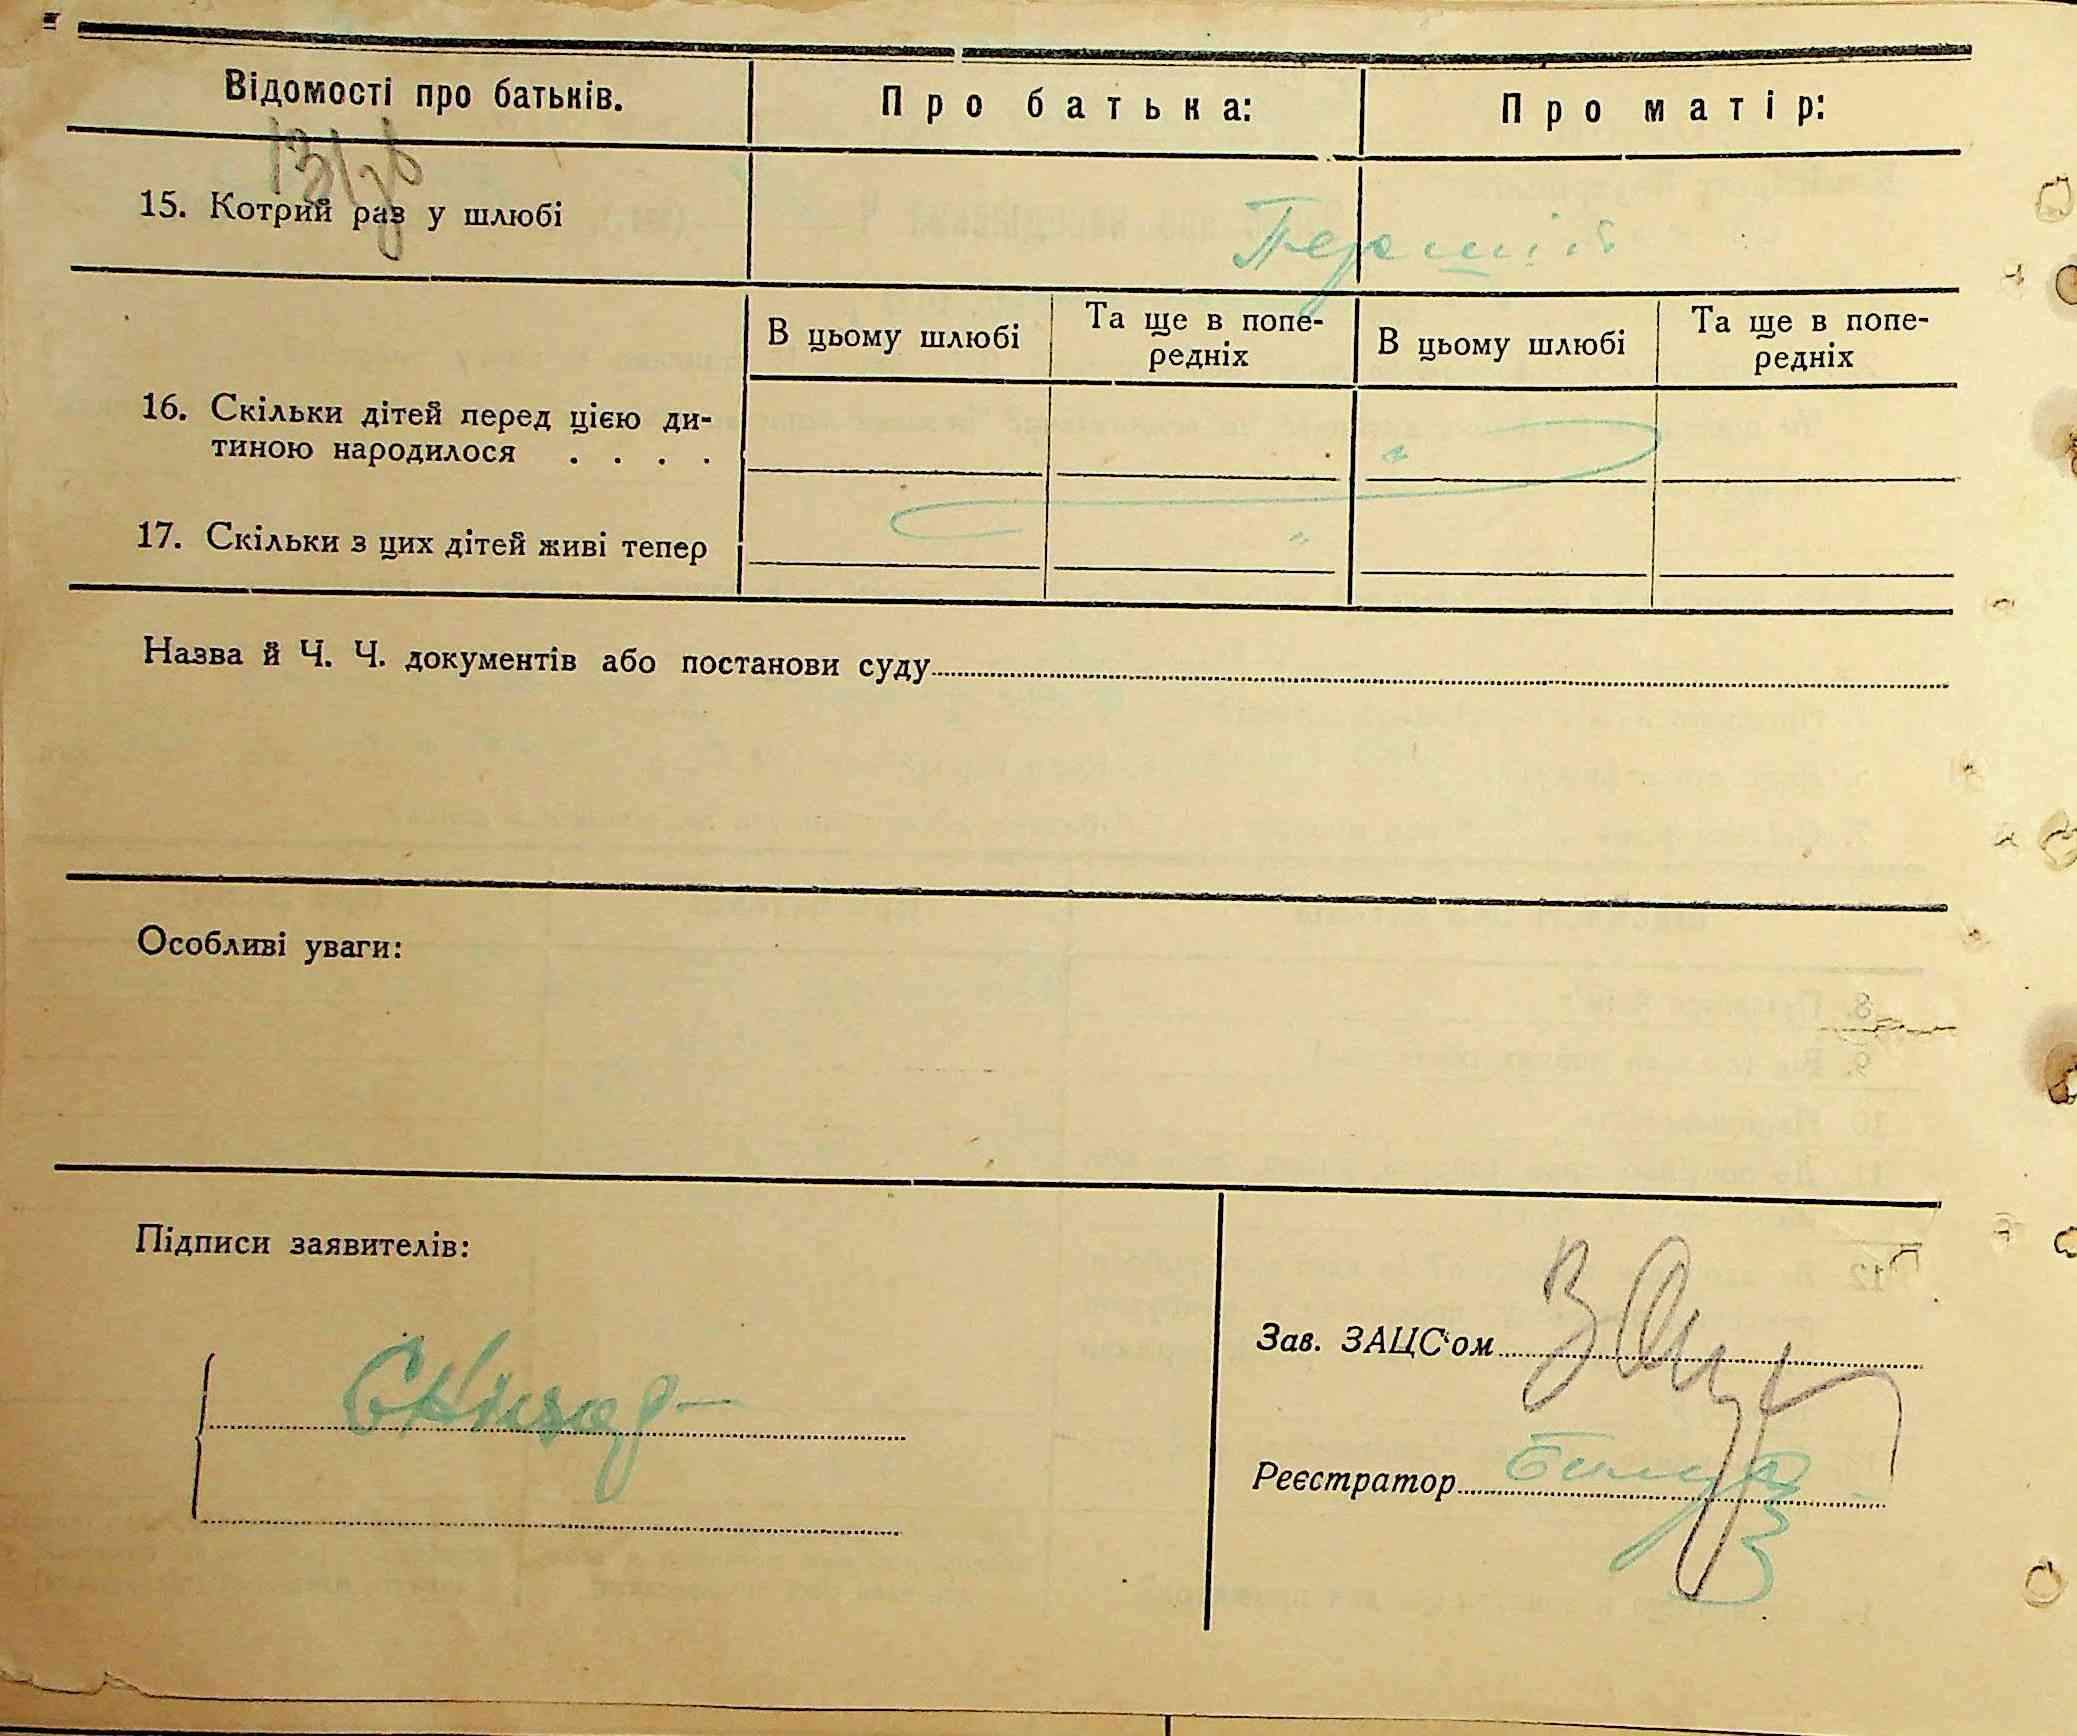 Відомості про батьків.
Про батька:
Про матір:
15. Котрий раз у шлюбі
Перший
В цьому шлюбі
Та ще в попе-
редніх
В цьому шлюбі
Та ще в попе-
редніх
16. Скільки дітей перед цією ди-
тиною народилося . . . .
17. Скільки з цих дітей живі тепер
Назва й Ч. Ч. документів або постанови суду
Особливі уваги:
Підписи заявителів:
Зав. ЗАЦС'ом
Реєстратор